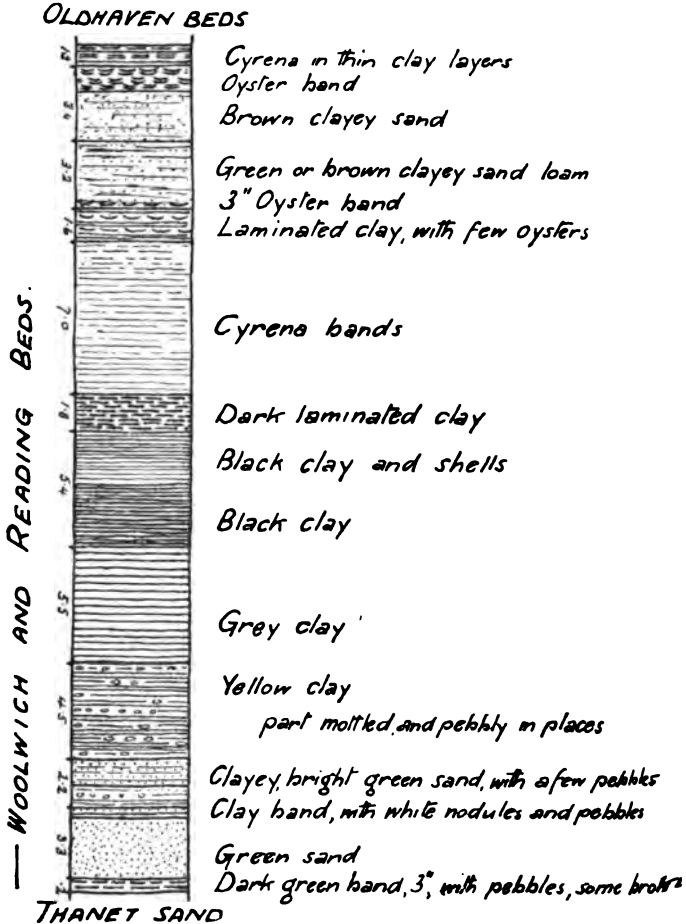 OLDHAVEN BEDS
Cyrena in thin clay layers
Oyster band
Brown clayey sand
Green or brown clayey sand loam
3" Oyster band
Laminated clay, with few oysters
Cyrena bands
Dark laminated clay
Black clay and shells
Black clay
Grey clay
Yellow clay
part mottled, and pebbly in places
Clayey, bright green sand, with a few pebbles
Clay band, with white nodules and pebbles
Green sand
Dark green band, 3", with pebbles, some
THANET SAND
WOOLWICH AND READING BEDS.